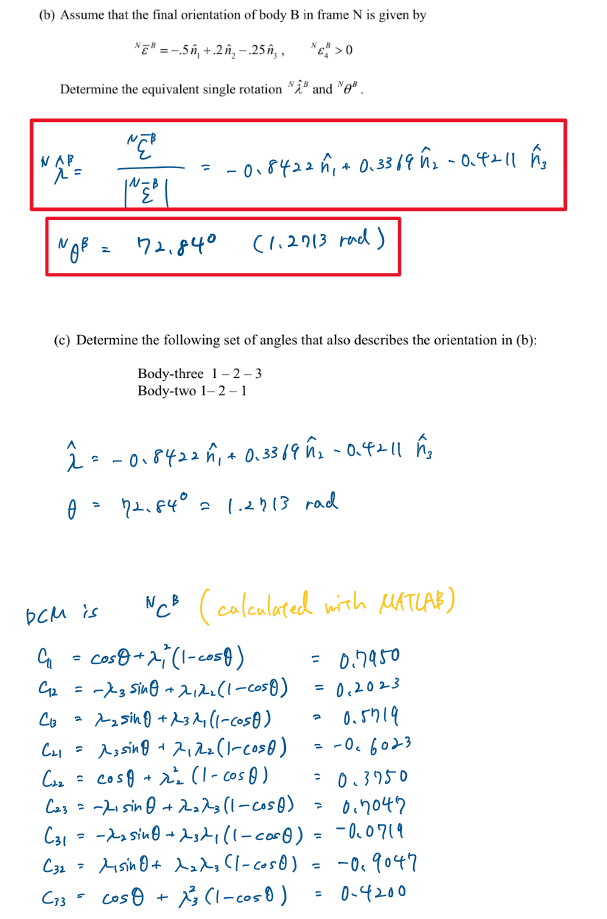 (b) Assume that the final orientation of body B in frame N is given by
ᴺε̄ᴮ = −.5n̂₁ + .2n̂₂ − .25n̂₃ ,   ᴺε₄ᴮ > 0
Determine the equivalent single rotation ᴺλ̂ᴮ and ᴺθᴮ .
ᴺλ̂ᴮ = ᴺε̄ᴮ / |ᴺε̄ᴮ| = - 0.8422 n̂₁ + 0.3369 n̂₂ - 0.4211 n̂₃
ᴺθᴮ = 72.84° (1.2713 rad)
(c) Determine the following set of angles that also describes the orientation in (b):
Body-three 1 – 2 – 3
Body-two 1– 2 – 1
λ̂ = - 0.8422 n̂₁ + 0.3369 n̂₂ - 0.4211 n̂₃
θ = 72.84° = 1.2713 rad
DCM is ᴺCᴮ (calculated with MATLAB)
C₁₁ = cosθ + λ₁²(1-cosθ) = 0.7950
C₁₂ = -λ₃ sinθ + λ₁λ₂(1-cosθ) = 0.2023
C₁₃ = λ₂sinθ + λ₃λ₁(1-cosθ) = 0.5719
C₂₁ = λ₃sinθ + λ₁λ₂(1-cosθ) = -0.6023
C₂₂ = cosθ + λ₂² (1-cosθ) = 0.3750
C₂₃ = -λ₁ sinθ + λ₂λ₃(1-cosθ) = 0.7047
C₃₁ = -λ₂sinθ + λ₃λ₁(1-cosθ) = -0.0719
C₃₂ = λ₁sinθ + λ₂λ₃ (1-cosθ) = -0.9047
C₃₃ = cosθ + λ₃² (1-cosθ) = 0.4200